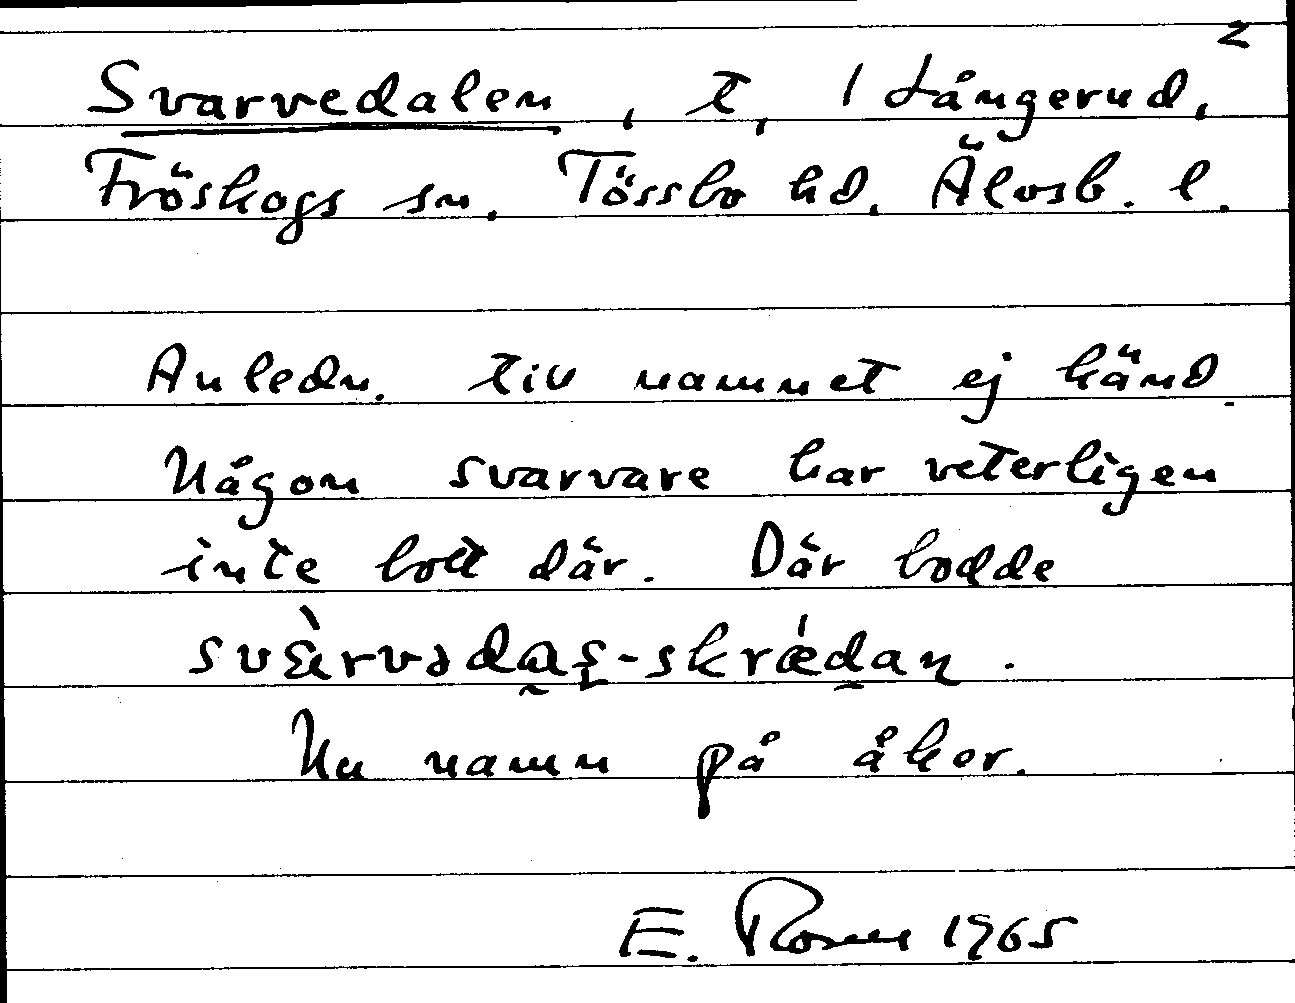 2
Svarvedalen, t, 1 Långerud,
Fröskogs sn. Tössbo hd. Älvsb. l.
Anledn. till namnet ej känd.
Någon svarvare har veterligen
inte bott där. Där bodde
svæ̀rvədaɽs-skrǽdaɳ.
Nu namn på åker.
E. Rosell 1965